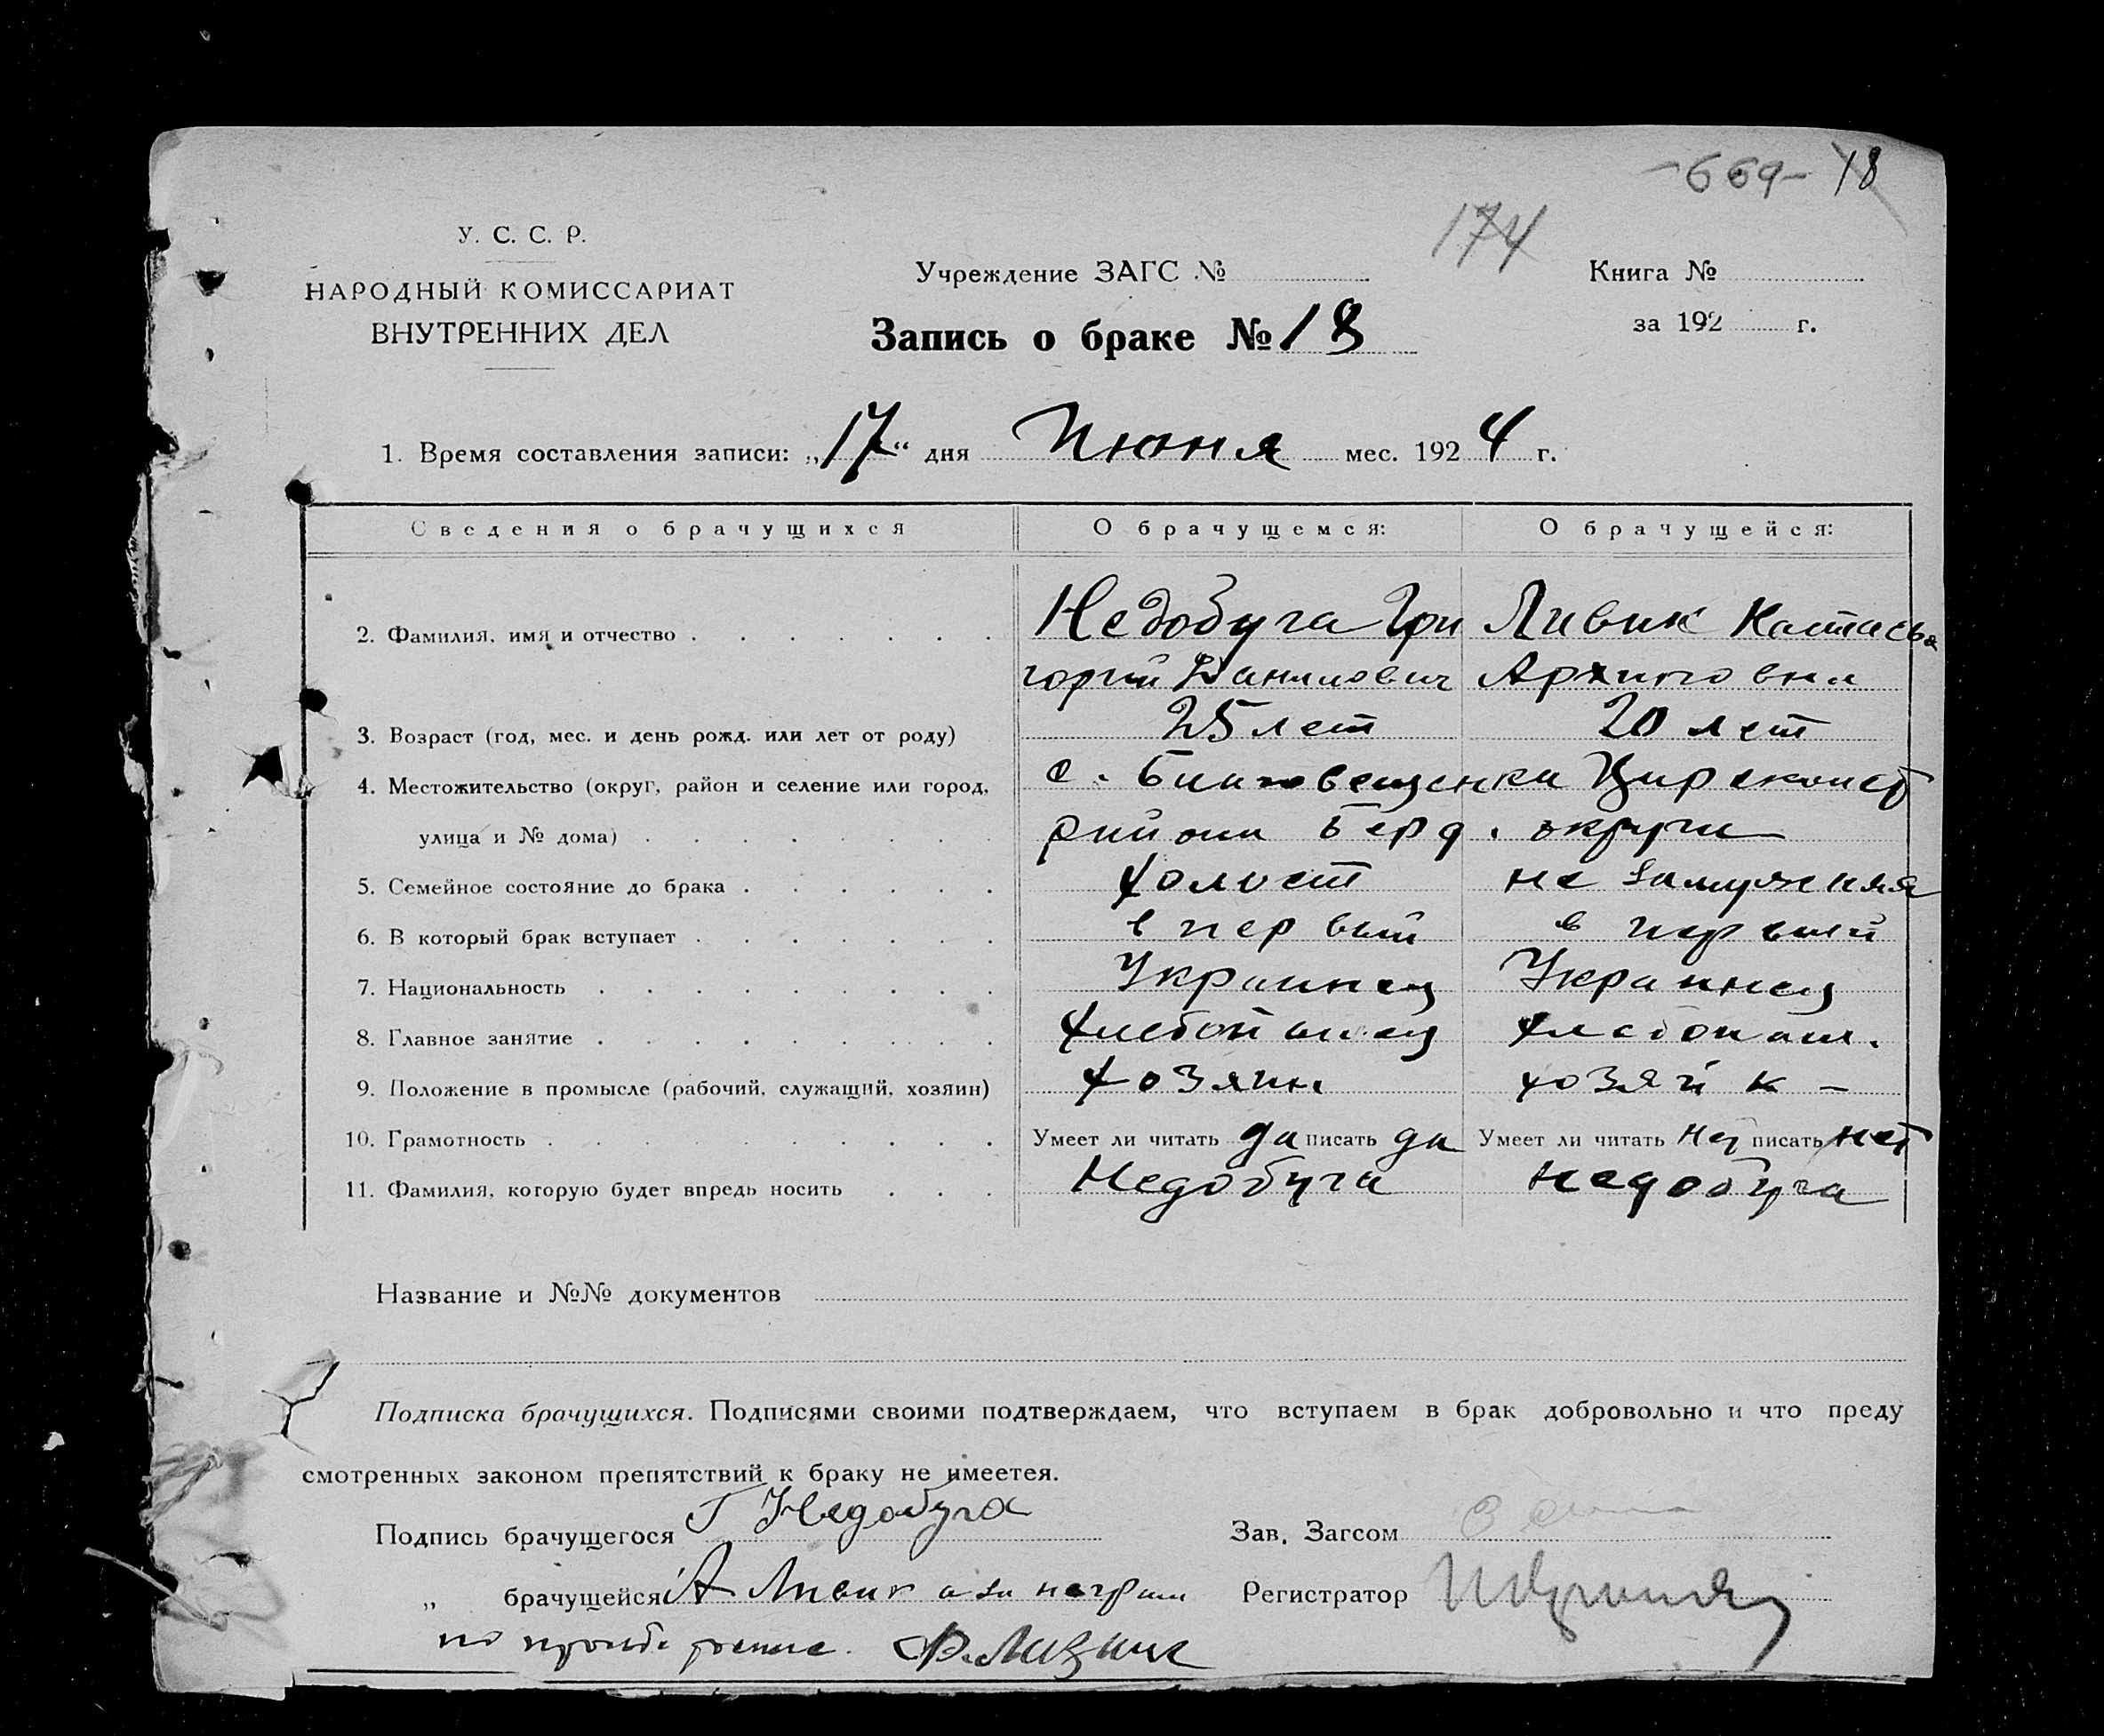 -669- 18
174
У. С. С. Р.
НАРОДНЫЙ КОМИССАРИАТ
ВНУТРЕННИХ ДЕЛ
Учреждение ЗАГС №
Книга №
за 192 г.
Запись о браке № 18
1. Время составления записи: „17“ дня Июня мес. 1924 г.
Сведения о брачущихся О брачущемся: О брачущейся:
2. Фамилия, имя и отчество Недобуга Гри Ливик
горий Данилович Архиповна
3. Возраст (год, мес. и день рожд. или лет от роду) 25 лет 20 лет
4. Местожительство (округ, район и селение или город, с. Благовещенка
улица и № дома) района Берд. округи
5. Семейное состояние до брака холост не замужняя
6. В который брак вступает в первый в первый
7. Национальность Украинец Украинец
8. Главное занятие хлебопашец хлебопаш.
9. Положение в промысле (рабочий, служащий, хозяин) хозяин хозяйк-
10. Грамотность Умеет ли читать да писать да Умеет ли читать нет писать нет
11. Фамилия, которую будет впредь носить Недобуга Недобуга
Название и №№ документов
Подписка брачущихся. Подписями своими подтверждаем, что вступаем в брак добровольно и что преду
смотренных законом препятствий к браку не имеетея.
Подпись брачущегося Г Недобуга
Зав. Загсом
„ брачущейся А Ливик а за неграм
Регистратор
по